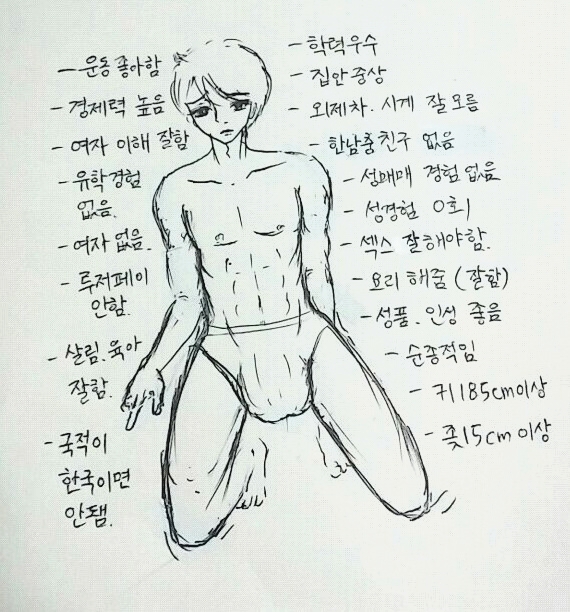 - 운동 좋아함
- 경제력 높음
- 여자 이해 잘함
- 유학경험
없음.
- 여자 없음.
- 루저페이
안함.
- 살림. 육아
잘함.
- 국적이
한국이면
안됨.
- 학력우수
- 집안 중상
- 외제차. 시계 잘 모름
- 한남충친구 없음
- 성매매 경험 없음
- 성경험 0회
- 섹스 잘해야함.
- 요리 해줌 (잘함)
- 성품. 인성 좋음
- 순종적임
- 키185cm이상
- 좆15cm 이상